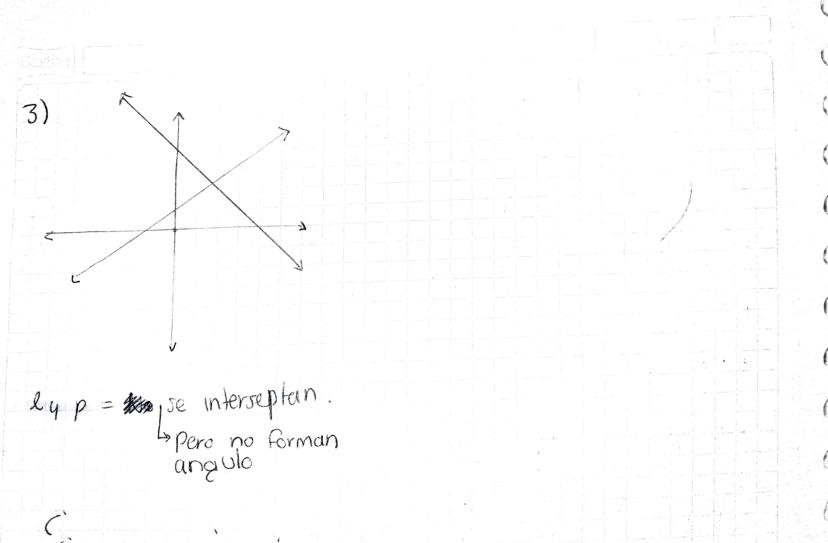 3)
l y p = se interseptan.
Pero no forman
angulo